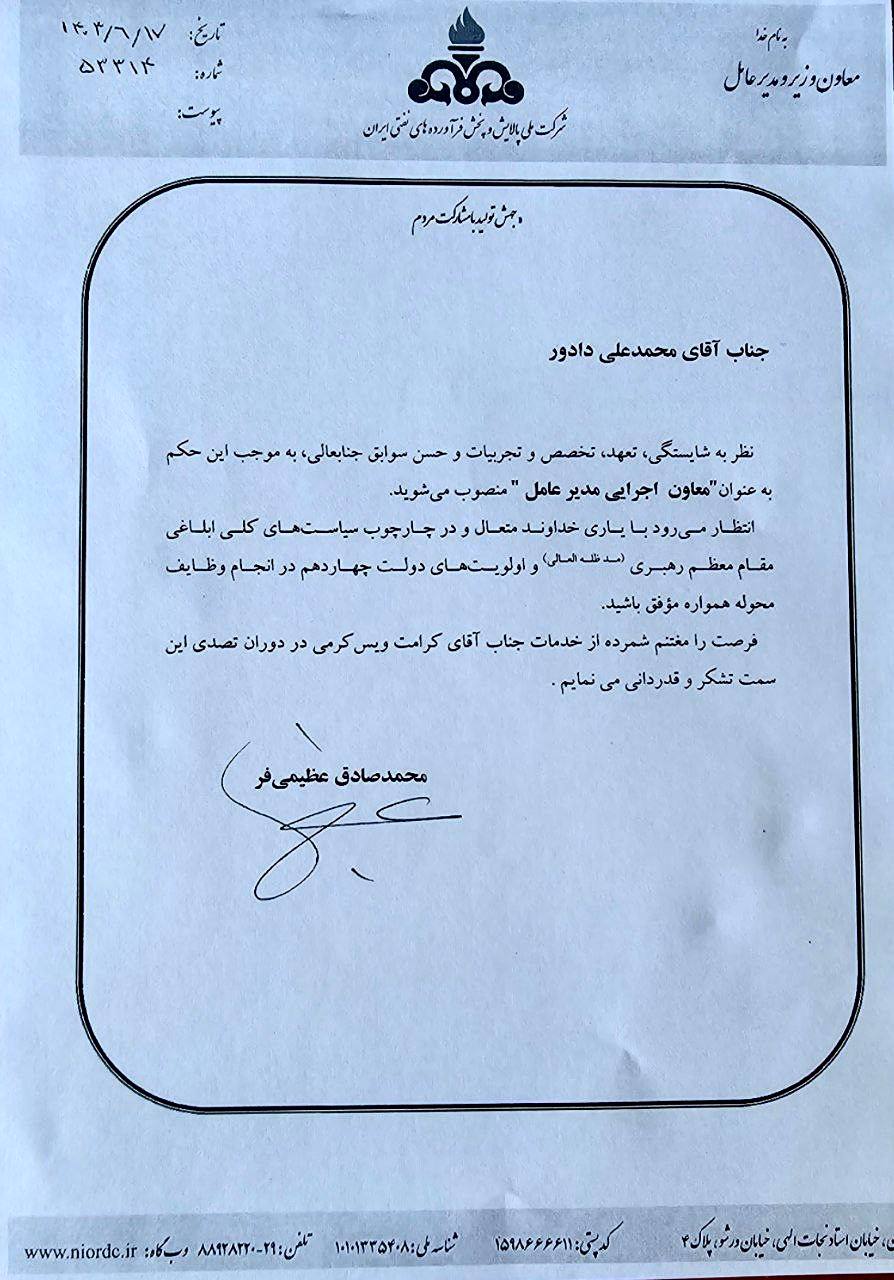 به نام خدا
معاون وزیر و مدیر عامل
شرکت ملی پالایش و پخش فرآورده های نفتی ایران
تاریخ: ۱۴۰۳/۶/۱۷
شماره: ۵۳۳۱۴
پیوست:
«جهش تولید با مشارکت مردم
جناب آقای محمدعلی دادور
نظر به شایستگی، تعهد، تخصص و تجربیات و حسن سوابق جنابعالی، به موجب این حکم
به عنوان"معاون اجرایی مدیر عامل " منصوب می‌شوید.
انتظار می‌رود با یاری خداوند متعال و در چارچوب سیاست‌های کلی ابلاغی
مقام معظم رهبری (مد ظله العالی) و اولویت‌های دولت چهاردهم در انجام وظایف
محوله همواره مؤفق باشید.
فرصت را مغتنم شمرده از خدمات جناب آقای کرامت ویس‌کرمی در دوران تصدی این
سمت تشکر و قدردانی می نمایم .
محمدصادق عظیمی‌فر
خیابان استاد نجات الهی، خیابان ورشو، پلاک ۴ کد پستی: ۱۵۹۸۶۶۶۶۱۱ شناسه ملی: ۱۰۱۰۱۳۳۵۴۰۸ تلفن: ۲۹-۸۸۹۲۸۲۲۰ وب گاه: www.niordc.ir